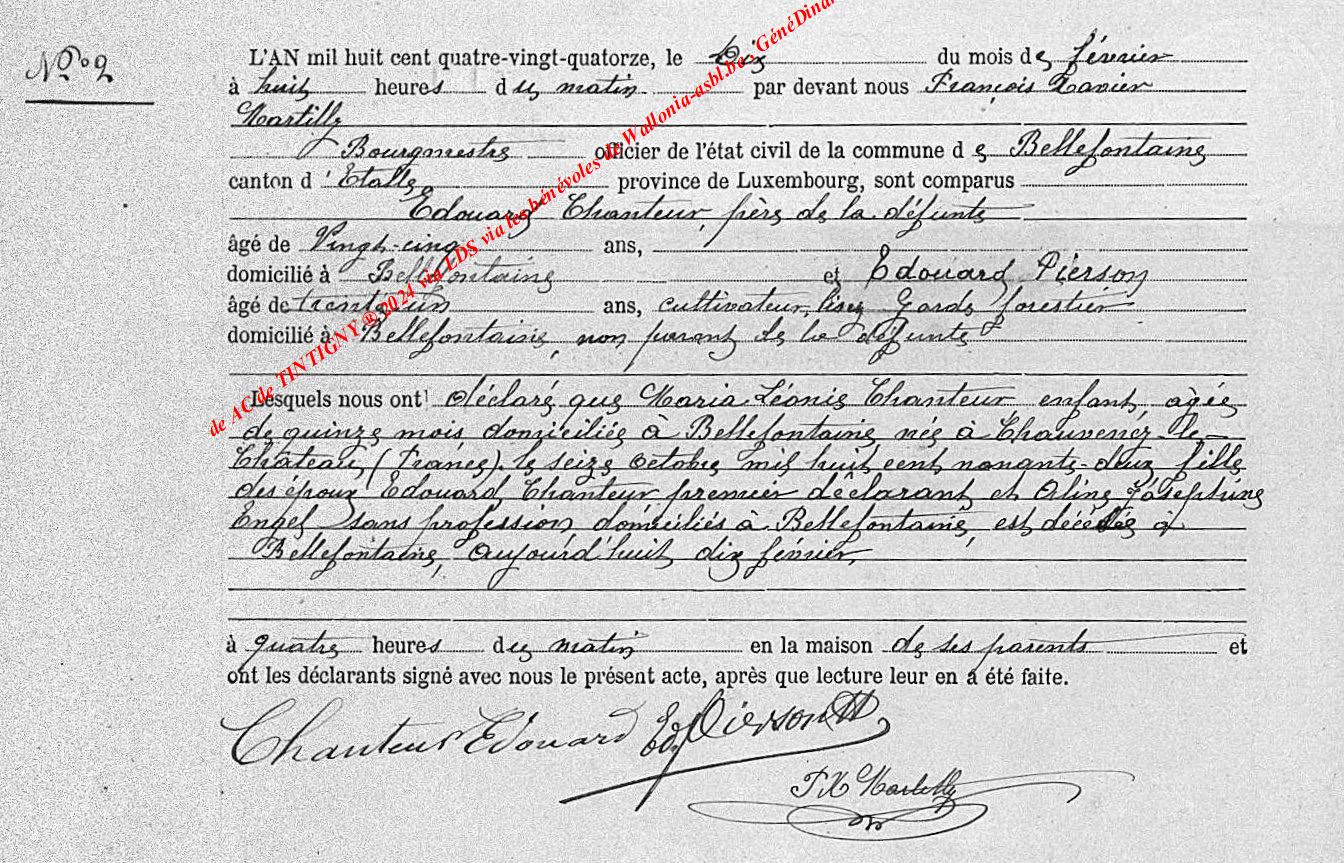 N° 2
L'AN mil huit cent quatre-vingt-quatorze, le dix du mois de février
à huit heures du matin par devant nous François Xavier
Martilly
Bourgmestre officier de l'état civil de la commune de Bellefontaine
canton d'Etalle province de Luxembourg, sont comparus
Edouard Chanteur, père de la défunte
âgé de Vingt-cinq ans,
domicilié à Bellefontaine et Edouard Pierson
âgé de trente un ans, cultivateur, lisez Garde forestier
domicilié à Bellefontaine, non parent de la défunte
Lesquels nous ont déclaré que Maria Léonie Chanteur enfant, âgée
de quinze mois domiciliée à Bellefontaine née à Chauvency-le-
Château (France) le seize octobre mil huit cent nonante-deux fille
des époux Edouard Chanteur premier déclarant et Aline Joséphine
Engel sans profession domiciliés à Bellefontaine, est décédée à
Bellefontaine, aujourd'huit dix février,
à quatre heures du matin en la maison de ses parents et
ont les déclarants signé avec nous le présent acte, après que lecture leur en a été faite.
Chanteur Edouard Ed Pierson
F X Martilly
de AC de TINTIGNY ® 2024 via LDS via les bénévoles de Wallonia-asbl.be - GénéDinan